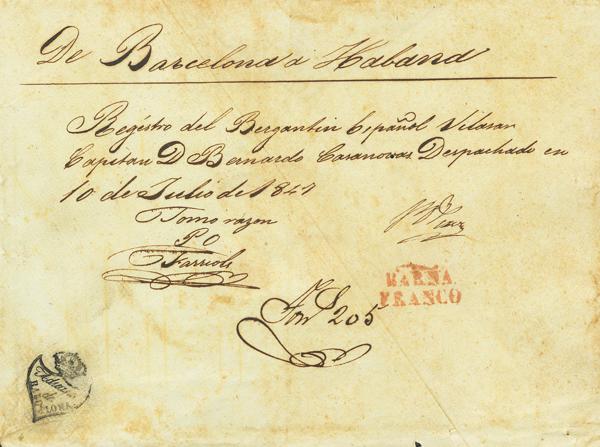 De Barcelona a Habana
Registro del Bergantin Español Vilasar
Capitan D Bernardo Casanovas Despachado en
10 de Julio de 1847
Tomo razon
P O
Farriols
BARNA
FRANCO
205